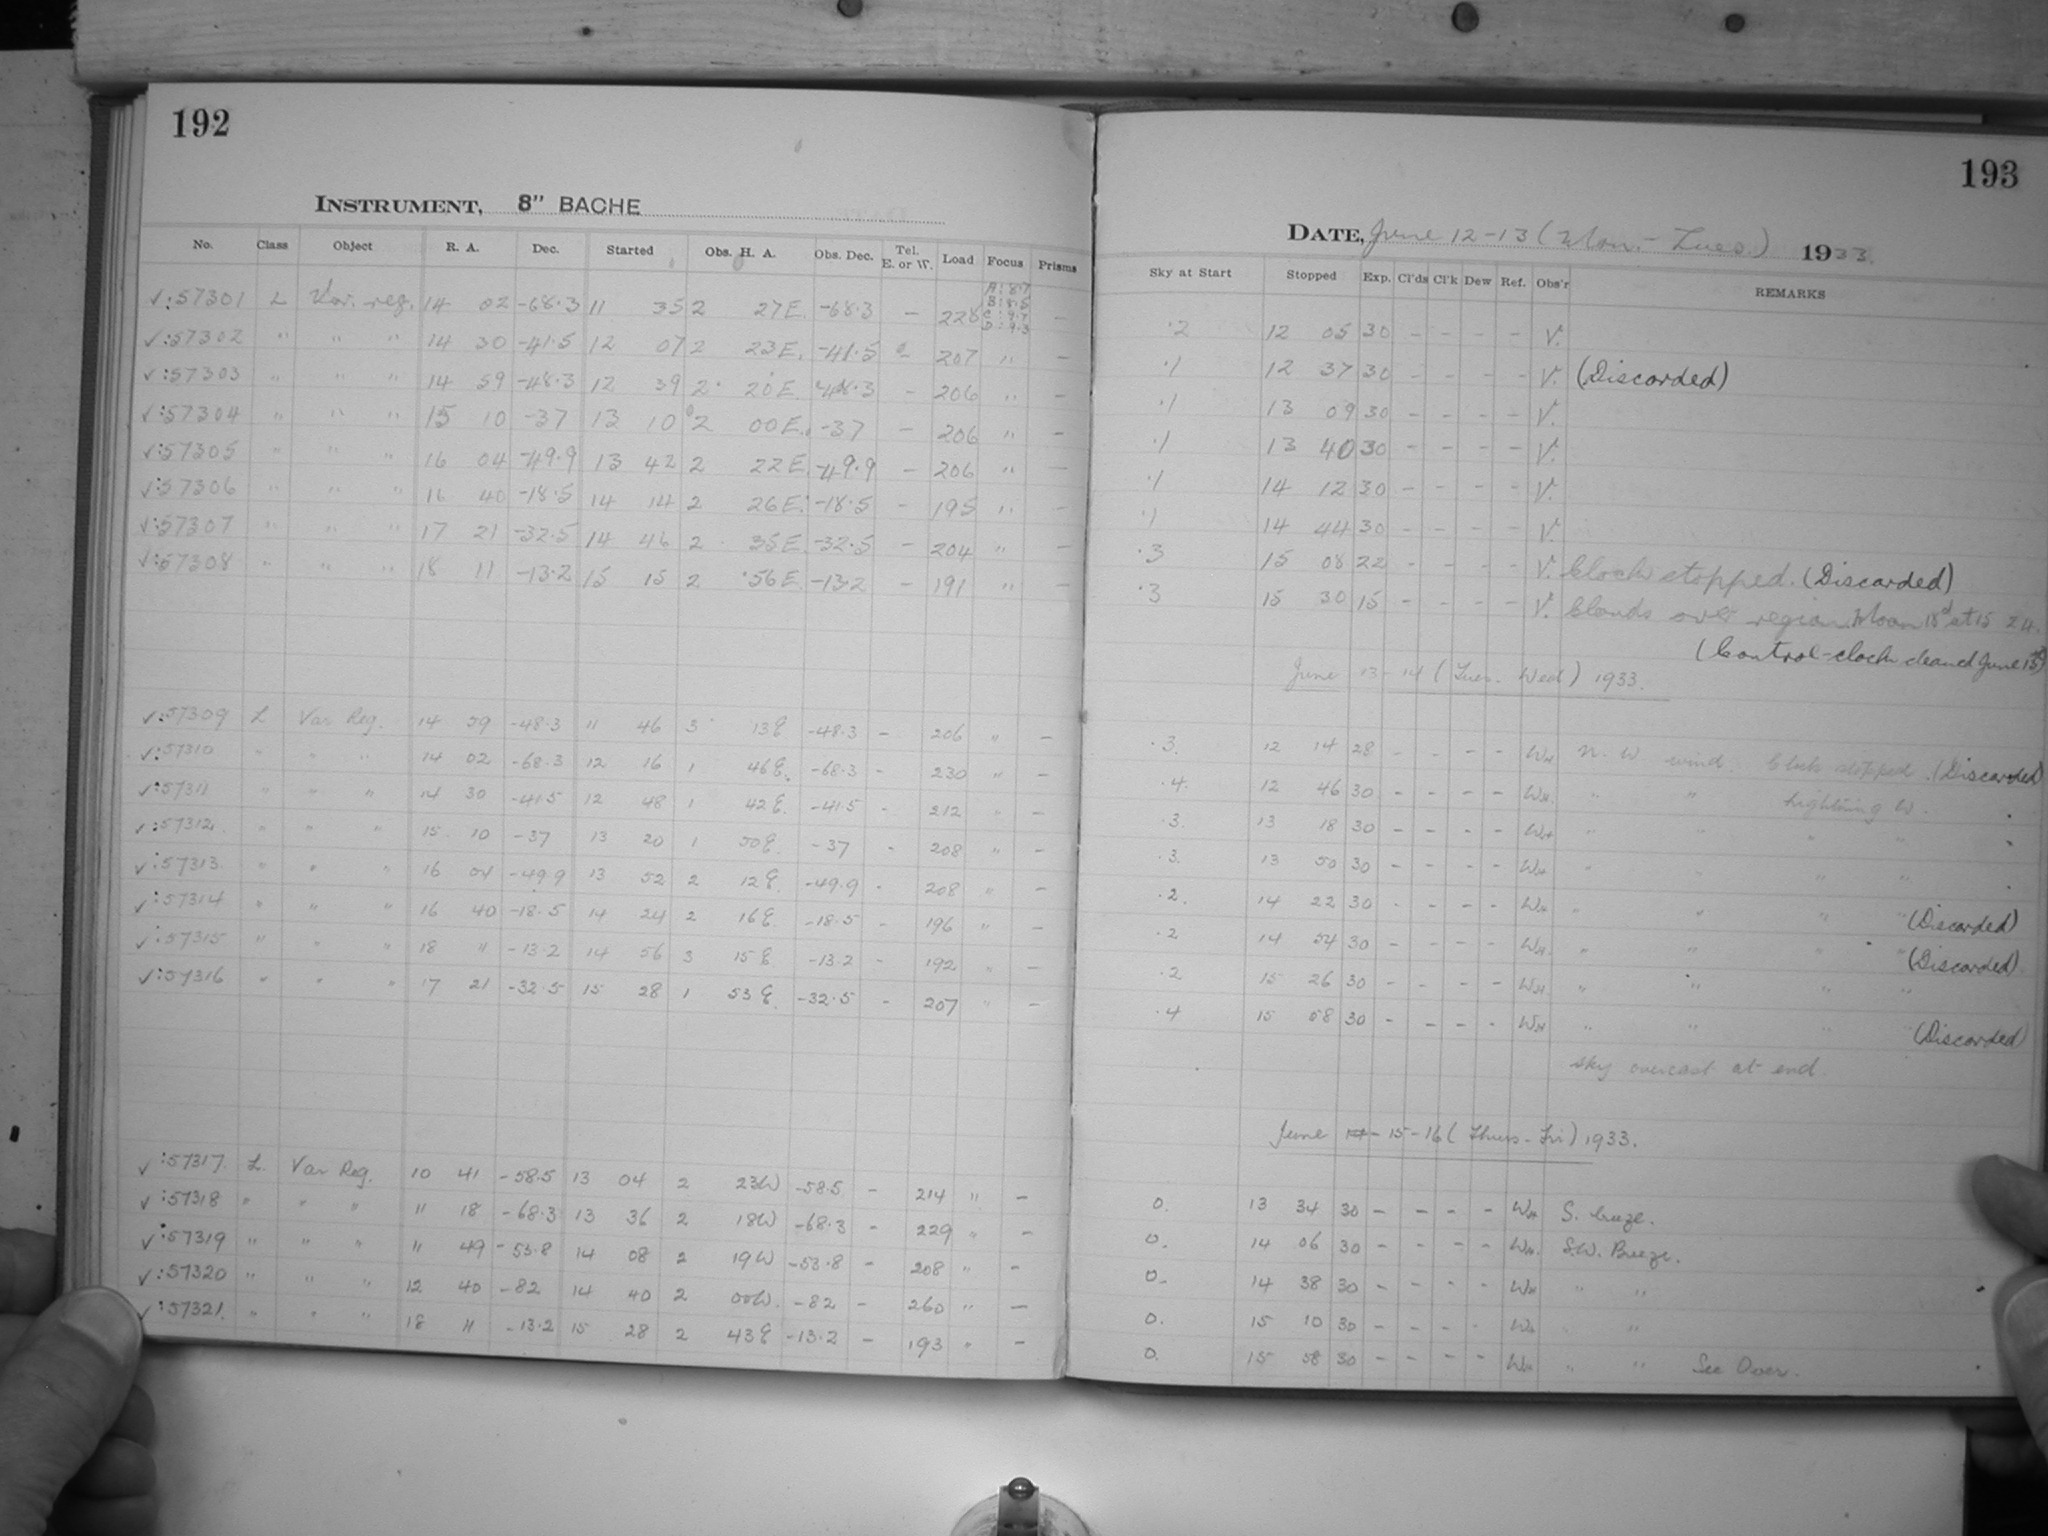 192
INSTRUMENT, 8" BACHE
No. Class Object R. A. Dec. Started Obs. H. A. Obs. Dec. Tel. E. or W. Load Focus Prisms
✓:57301 L Var. reg. 14 02 -68.3 11 35 2 27E. -68.3 - 228 A:8.7 B:8.5 C:9.7 D:9.3 -
✓:57302 " " " 14 30 -41.5 12 07 2 23E. -41.5 - 207 " -
✓:57303 " " " 14 59 -48.3 12 39 2 20E. -48.3 - 206 " -
✓:57304 " " " 15 10 -37 13 10 2 00E. -37 - 206 " -
✓:57305 " " " 16 04 -49.9 13 42 2 22E. -49.9 - 206 " -
✓:57306 " " " 16 40 -18.5 14 14 2 26E. -18.5 - 195 " -
✓:57307 " " " 17 21 -32.5 14 46 2 35E -32.5 - 204 " -
✓:57308 " " " 18 11 -13.2 15 15 2 56E -13.2 - 191 " -
✓:57309 L Var Reg. 14 59 -48.3 11 46 3 13E -48.3 - 206 " -
✓:57310 " " " 14 02 -68.3 12 16 1 46E. -68.3 - 230 " -
✓:57311 " " " 14 30 -41.5 12 48 1 42E -41.5 - 212 " -
✓:57312 " " " 15 10 -37 13 20 1 50E. -37 - 208 " -
✓:57313 " " " 16 04 -49.9 13 52 2 12E. -49.9 - 208 " -
✓:57314 " " " 16 40 -18.5 14 24 2 16E -18.5 - 196 " -
✓:57315 " " " 18 11 -13.2 14 56 3 15E -13.2 - 192 " -
✓:57316 " " " 17 21 -32.5 15 28 1 53E. -32.5 - 207 " -
✓:57317. L. Var Reg. 10 41 -58.5 13 04 2 23W -58.5 - 214 " -
✓:57318 " " " 11 18 -68.3 13 36 2 18W -68.3 - 229 " -
✓:57319 " " " 11 49 -53.8 14 08 2 19W -53.8 - 208 " -
✓:57320 " " " 12 40 -82 14 40 2 00W. -82 - 260 " -
✓:57321. " " " 18 11 -13.2 15 28 2 43E -13.2 - 193 " -
193
DATE, June 12-13 (Mon. - Tues.) 1933.
Sky at Start Stopped Exp. Cl'ds Cl'k Dew Ref. Obs'r REMARKS
.2 12 05 30 - - - - V.
.1 12 37 30 - - - - V. (Discarded)
.1 13 09 30 - - - - V.
.1 13 40 30 - - - - V.
.1 14 12 30 - - - - V.
.1 14 44 30 - - - - V.
.3 15 08 22 - - - - V. Clock stopped. (Discarded)
.3 15 30 15 - - - - V. Clouds over region. Moon 18d at 15 24.
(Control-clock cleaned June 13th)
June 13-14 (Tues. Wed) 1933.
.3. 12 14 28 - - - - WH N. W. wind. Clock stopped. (Discarded)
.4. 12 46 30 - - - - WH. " " Lightning W.
.3. 13 18 30 - - - - WH " " " "
.3. 13 50 30 - - - - WH " " " "
.2. 14 22 30 - - - - WH " " " " (Discarded)
.2 14 54 30 - - - - WH. " " " " (Discarded)
.2 15 26 30 - - - - WH. " " " "
.4 15 58 30 - - - - WH " " " " (Discarded)
Sky overcast at end
June 14-15-16 (Thurs-Fri) 1933.
0. 13 34 30 - - - - WH S. breeze.
0. 14 06 30 - - - - WH. S.W. Breeze.
0. 14 38 30 - - - - WH " "
0. 15 10 30 - - - - WH " "
0. 15 58 30 - - - - WH " " See Over.